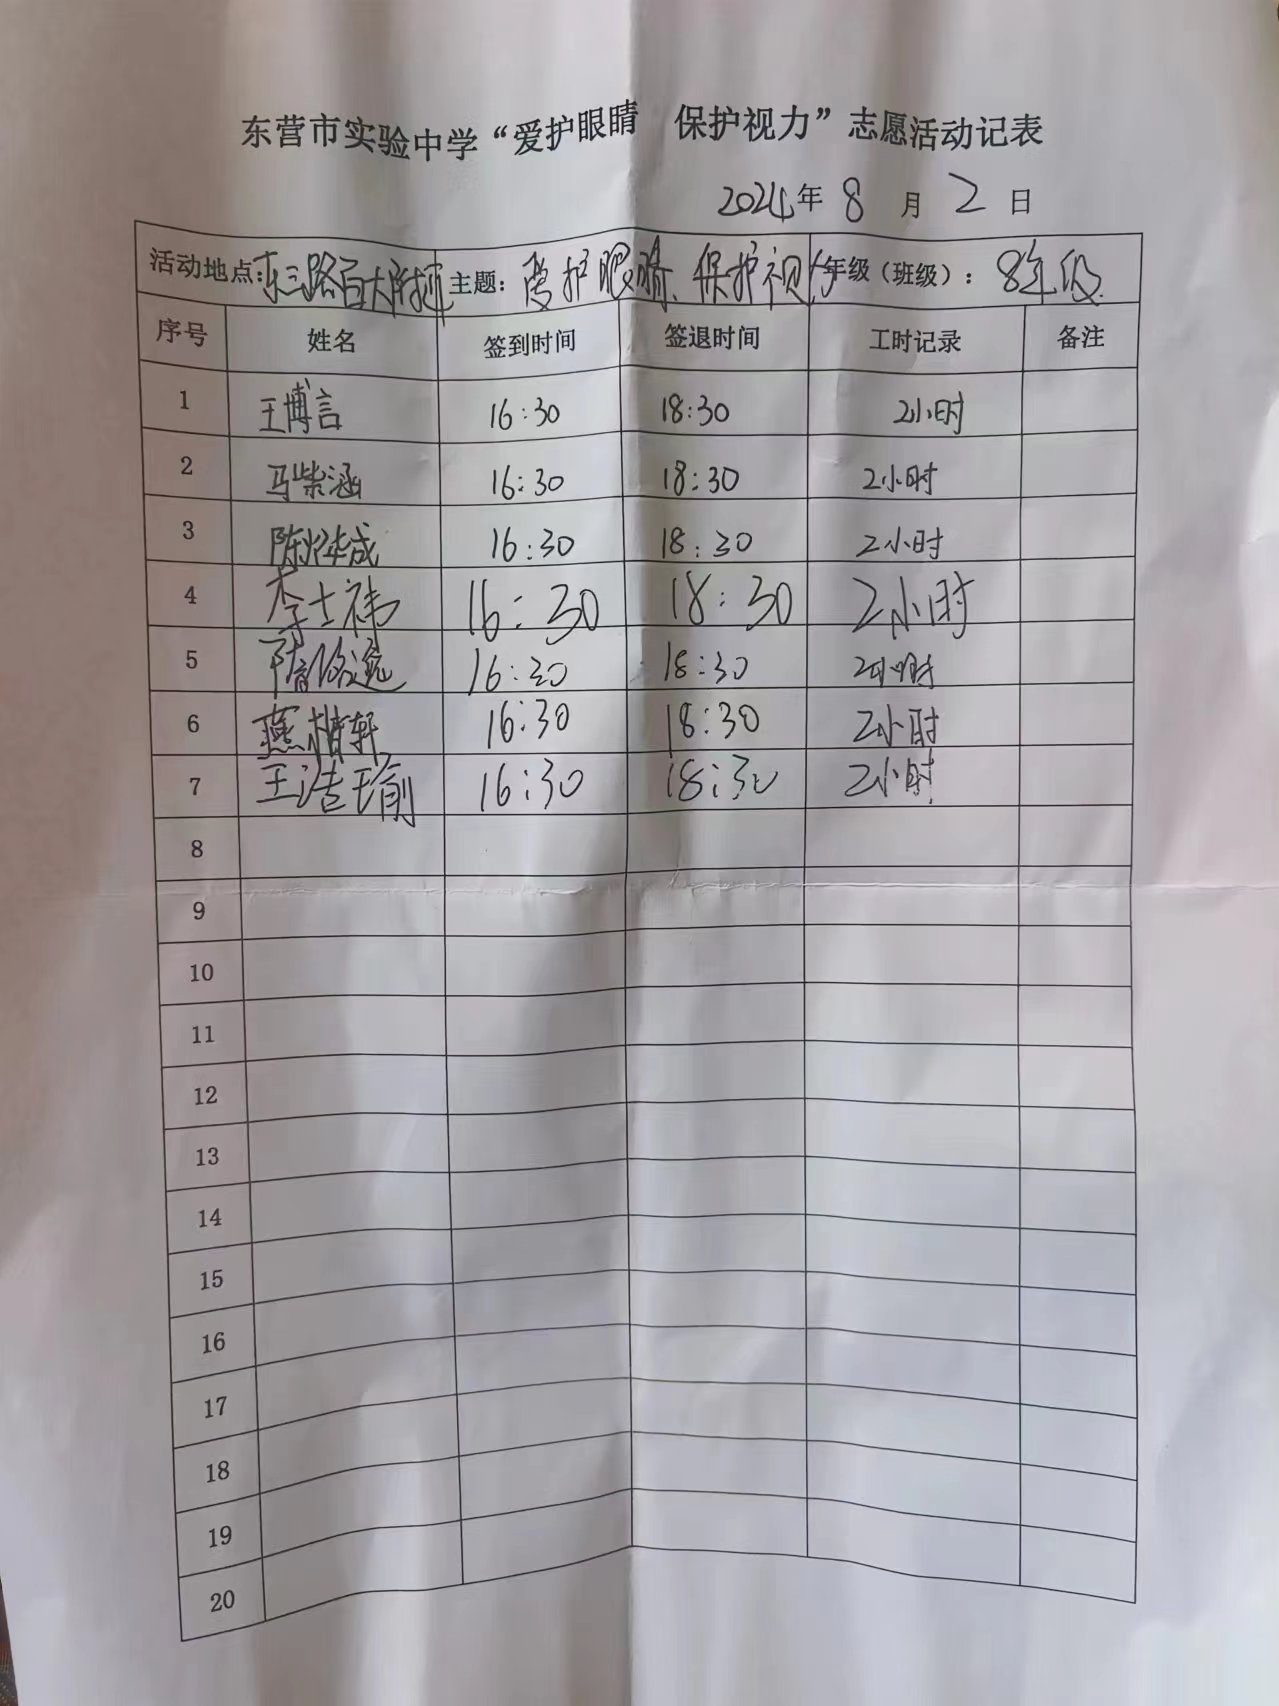 东营市实验中学“爱护眼睛 保护视力”志愿活动记表
2024年 8 月 2 日
活动地点：东三路百大附近 主题：爱护眼睛、保护视力 年级（班级）：8年级
序号 姓名 签到时间 签退时间 工时记录 备注
1 王博言 16:30 18:30 2小时
2 马紫涵 16:30 18:30 2小时
3 陈 成 16:30 18:30 2小时
4 李士祎 16:30 18:30 2小时
5 16:30 18:30 2小时
6 燕楷轩 16:30 18:30 2小时
7 王浩瑜 16:30 18:30 2小时
8
9
10
11
12
13
14
15
16
17
18
19
20